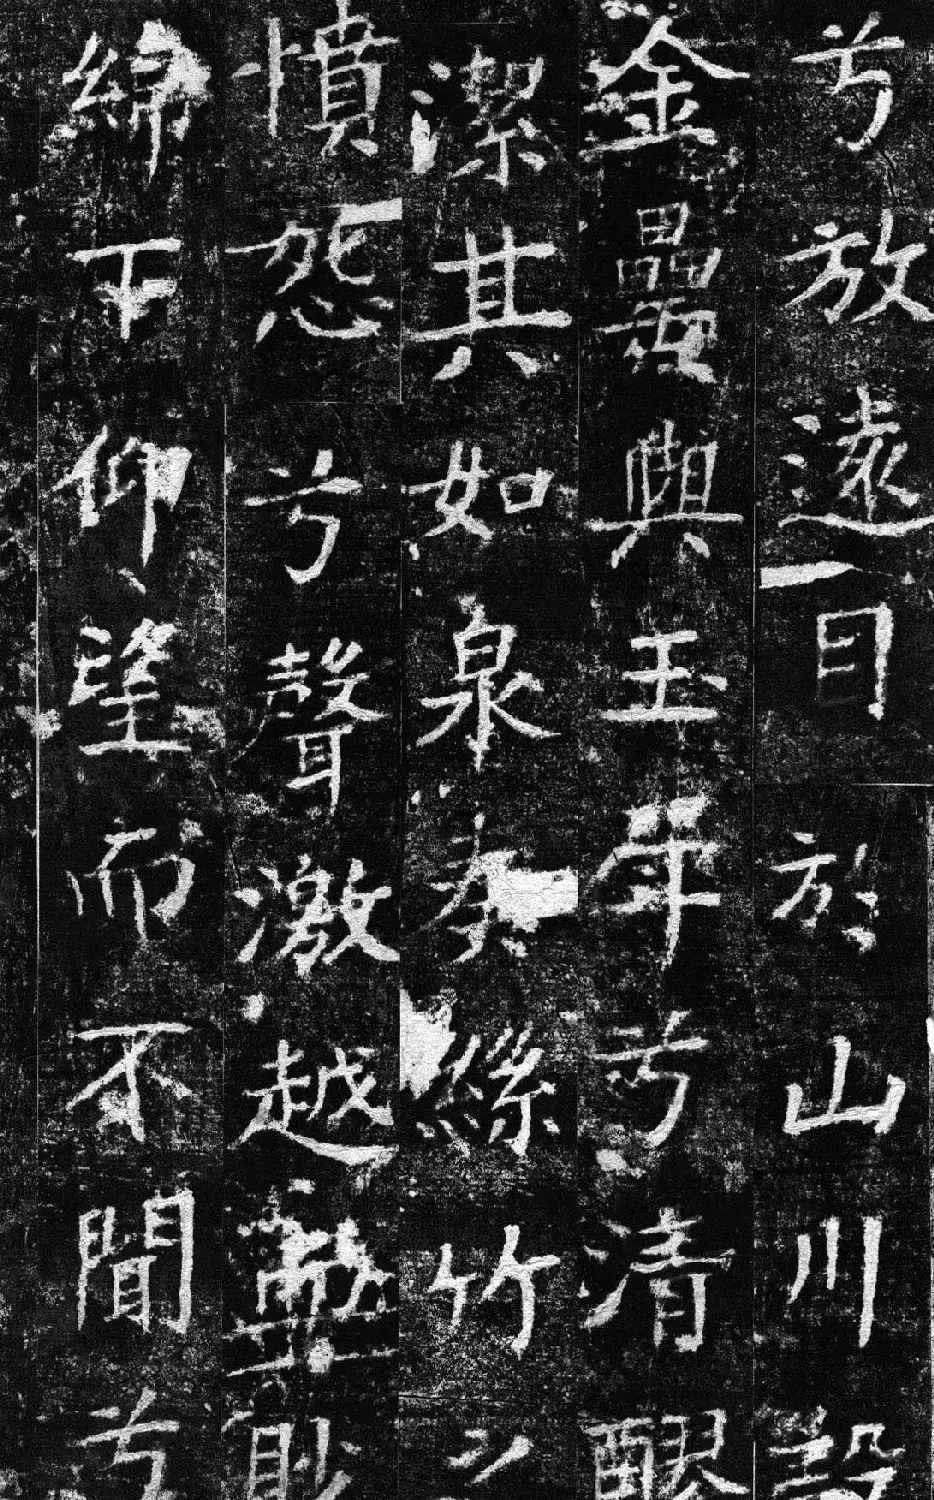 兮放遠目於山川設
金罍與玉斝兮清醪
潔其如泉奏絲竹之
憤怨兮聲激越眇
綿下仰望而不聞兮